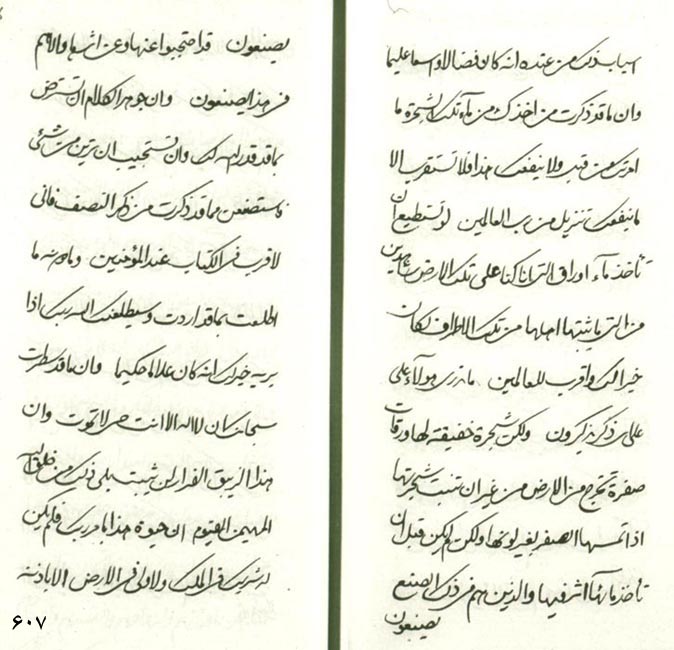 اسباب ذلك من عنده انه كان فضالا واسعا عليما
وان ما قد ذكرت من اخذك من مآء تلك الشجرة ما
امرتك من قبل ولا ينفعك هذا فلا تستقرب الا
ما ينفعك تنزيل من رب العالمين لو تستطيع ان
تأخذ مآء اوراق التي انا كنا على تلك الارض شاهدين
من التي ما يثبتها اهلها من تلك الاطراف لكان
خيرا لك واقرب للعالمين ما ندري هؤلآء على
على ذكر يذكرون ولكن شجرة خفيفة لها ورقات
صفرة تخرج من الارض من غير ان تنبت شجرتها
اذا تمسها الصفر يغير لونها ولكن لم يكن قبل ان
تأخذ مآئها اثر فيها والذين هم في ذلك الصنع
يصنعون
يصنعون قد احتجبوا عنها وعن اثرها والا هم
في هذا يصنعون وان جوهر الكلام ان تسترض
بما قد قدر الله لك وان تستجيب ان ترين من شئ
فاستصنعن مما قد ذكرت من ذكر النصف فانى
لا قرب في الكتاب عند المؤمنين وما من ما
اطلعت بما قد اردت وسيطلعنك الله ربك اذا
يريد خيرا لك انه كان علاما حكيما وان ما قد سطرت
سبحانك ان لا اله الا انت حى لا تموت وان
هذا الزيبق الفرار لن يثبت بلى ذلك من خلق الله
المهيمن القيوم ان حيوة هذا بامر ربك فلم يكن
له شريك في الملك ولا ولى في الارض الا باذنه
۶۰۷